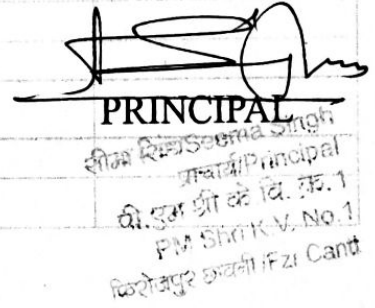 PRINCIPAL
सीमा सिंह/Seema Singh
प्राचार्य/Principal
पी.एम श्री के वि. क्र. 1
PM Shri K.V. No.1
फिरोजपुर छावनी /Fzr Cantt